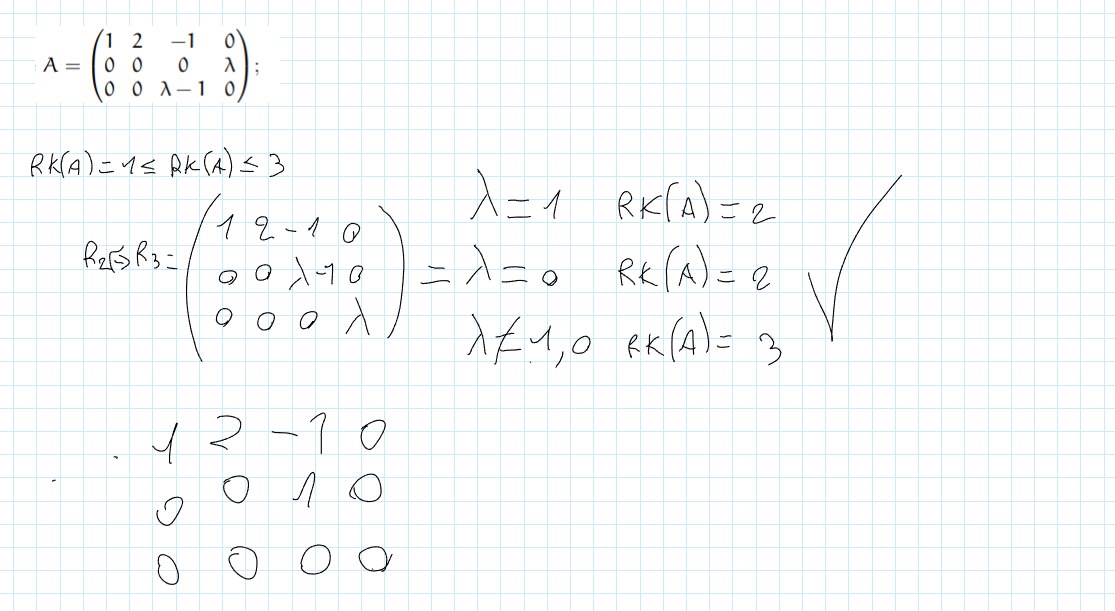 A = (1 2 −1 0
0 0 0 λ
0 0 λ−1 0);
RK(A)=1≤ RK(A)≤ 3
R2⇔R3= (1 2 -1 0
0 0 λ-1 0
0 0 0 λ) =
λ=1 RK(A)=2
λ=0 RK(A)=2
λ≠1,0 RK(A)= 3
1 2 -1 0
0 0 1 0
0 0 0 0